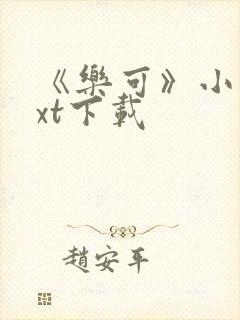 《樂可》小
xt下載
趙安平